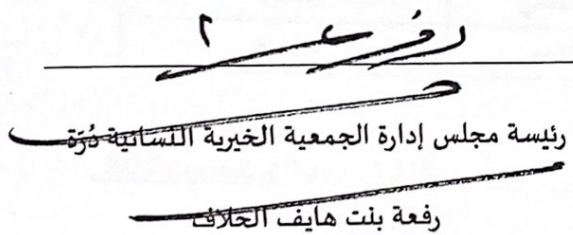 رئيسة مجلس إدارة الجمعية الخيرية النسائية دُرَة
رفعة بنت هايف الحلاف